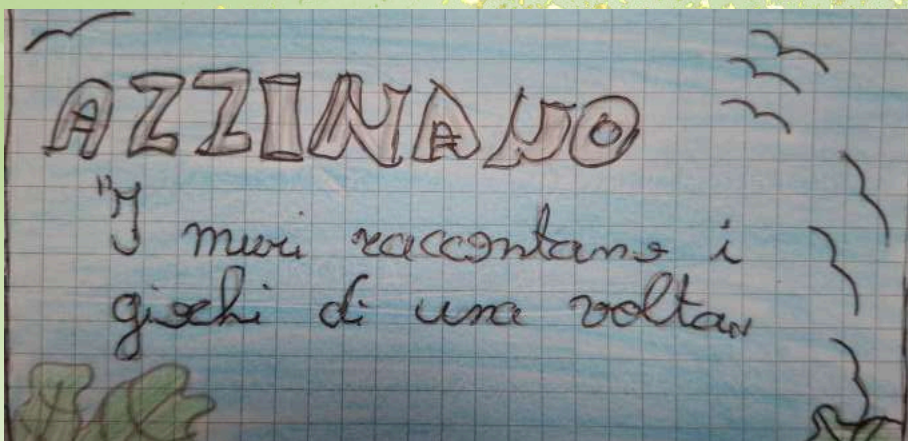 AZZINANO
"I muri raccontano i
giochi di una volta"